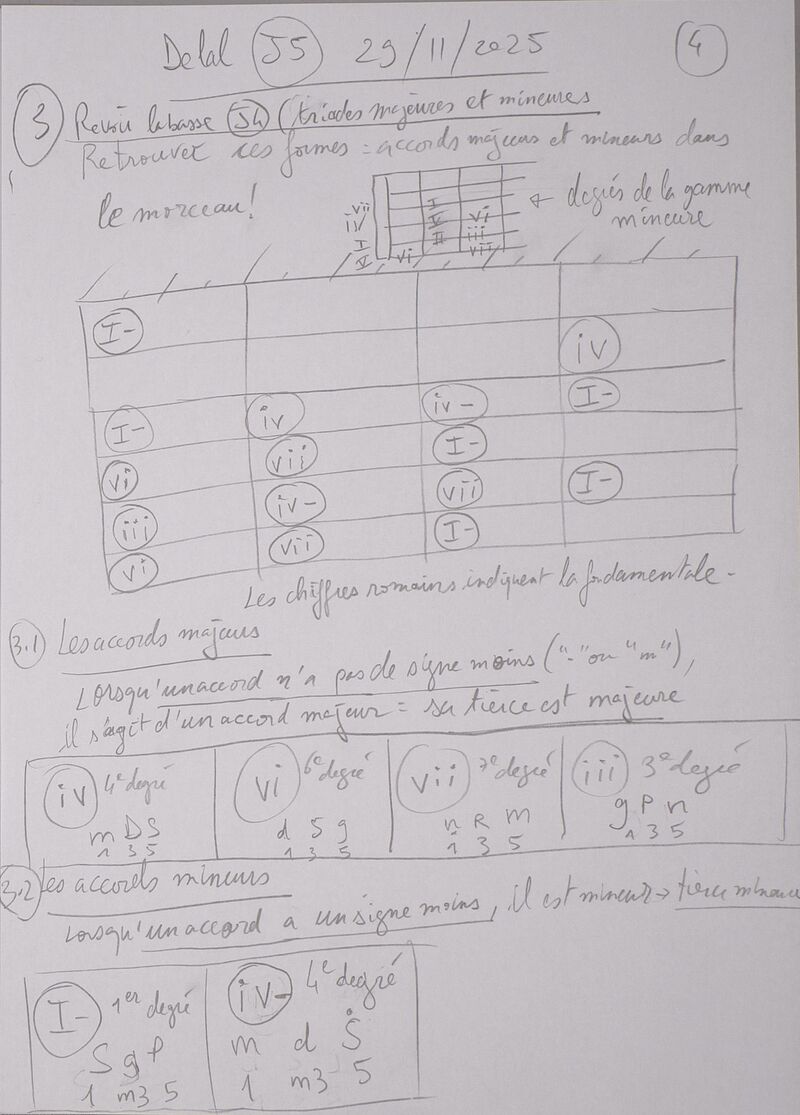 Delal J5 29/11/2025 4
3 Revoir la basse J4 (triades majeures et mineures
Retrouver ces formes = accords majeurs et mineurs dans
le morceau!
vii
iv I
I V vi
V II iii
vi vii
← degrés de la gamme
mineure
I-
iv
I- iv iv- I-
vi vii I-
iii iv- vii I-
vi vii I-
Les chiffres romains indiquent la fondamentale-
3.1 Les accords majeurs
Lorsqu'un accord n'a pas de signe moins ("-" ou "m"),
il s'agit d'un accord majeur = sa tierce est majeure
iv 4e degré vi 6e degré vii 7e degré iii 3e degré
m D S d S g n R m g P n
1 3 5 1 3 5 1 3 5 1 3 5
3.2 Les accords mineurs
Lorsqu'un accord a un signe moins, il est mineur → tierce mineure
I- 1er degré iv- 4e degré
S g P m d Ṡ
1 m3 5 1 m3 5